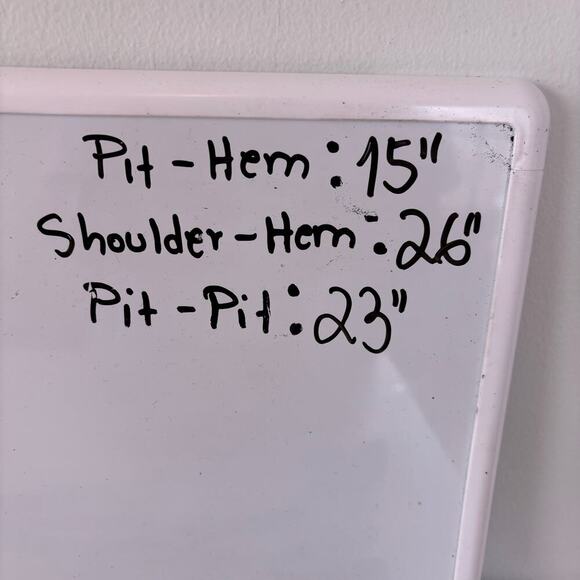 Pit - Hem : 15"
Shoulder - Hem : 26"
Pit - Pit : 23"